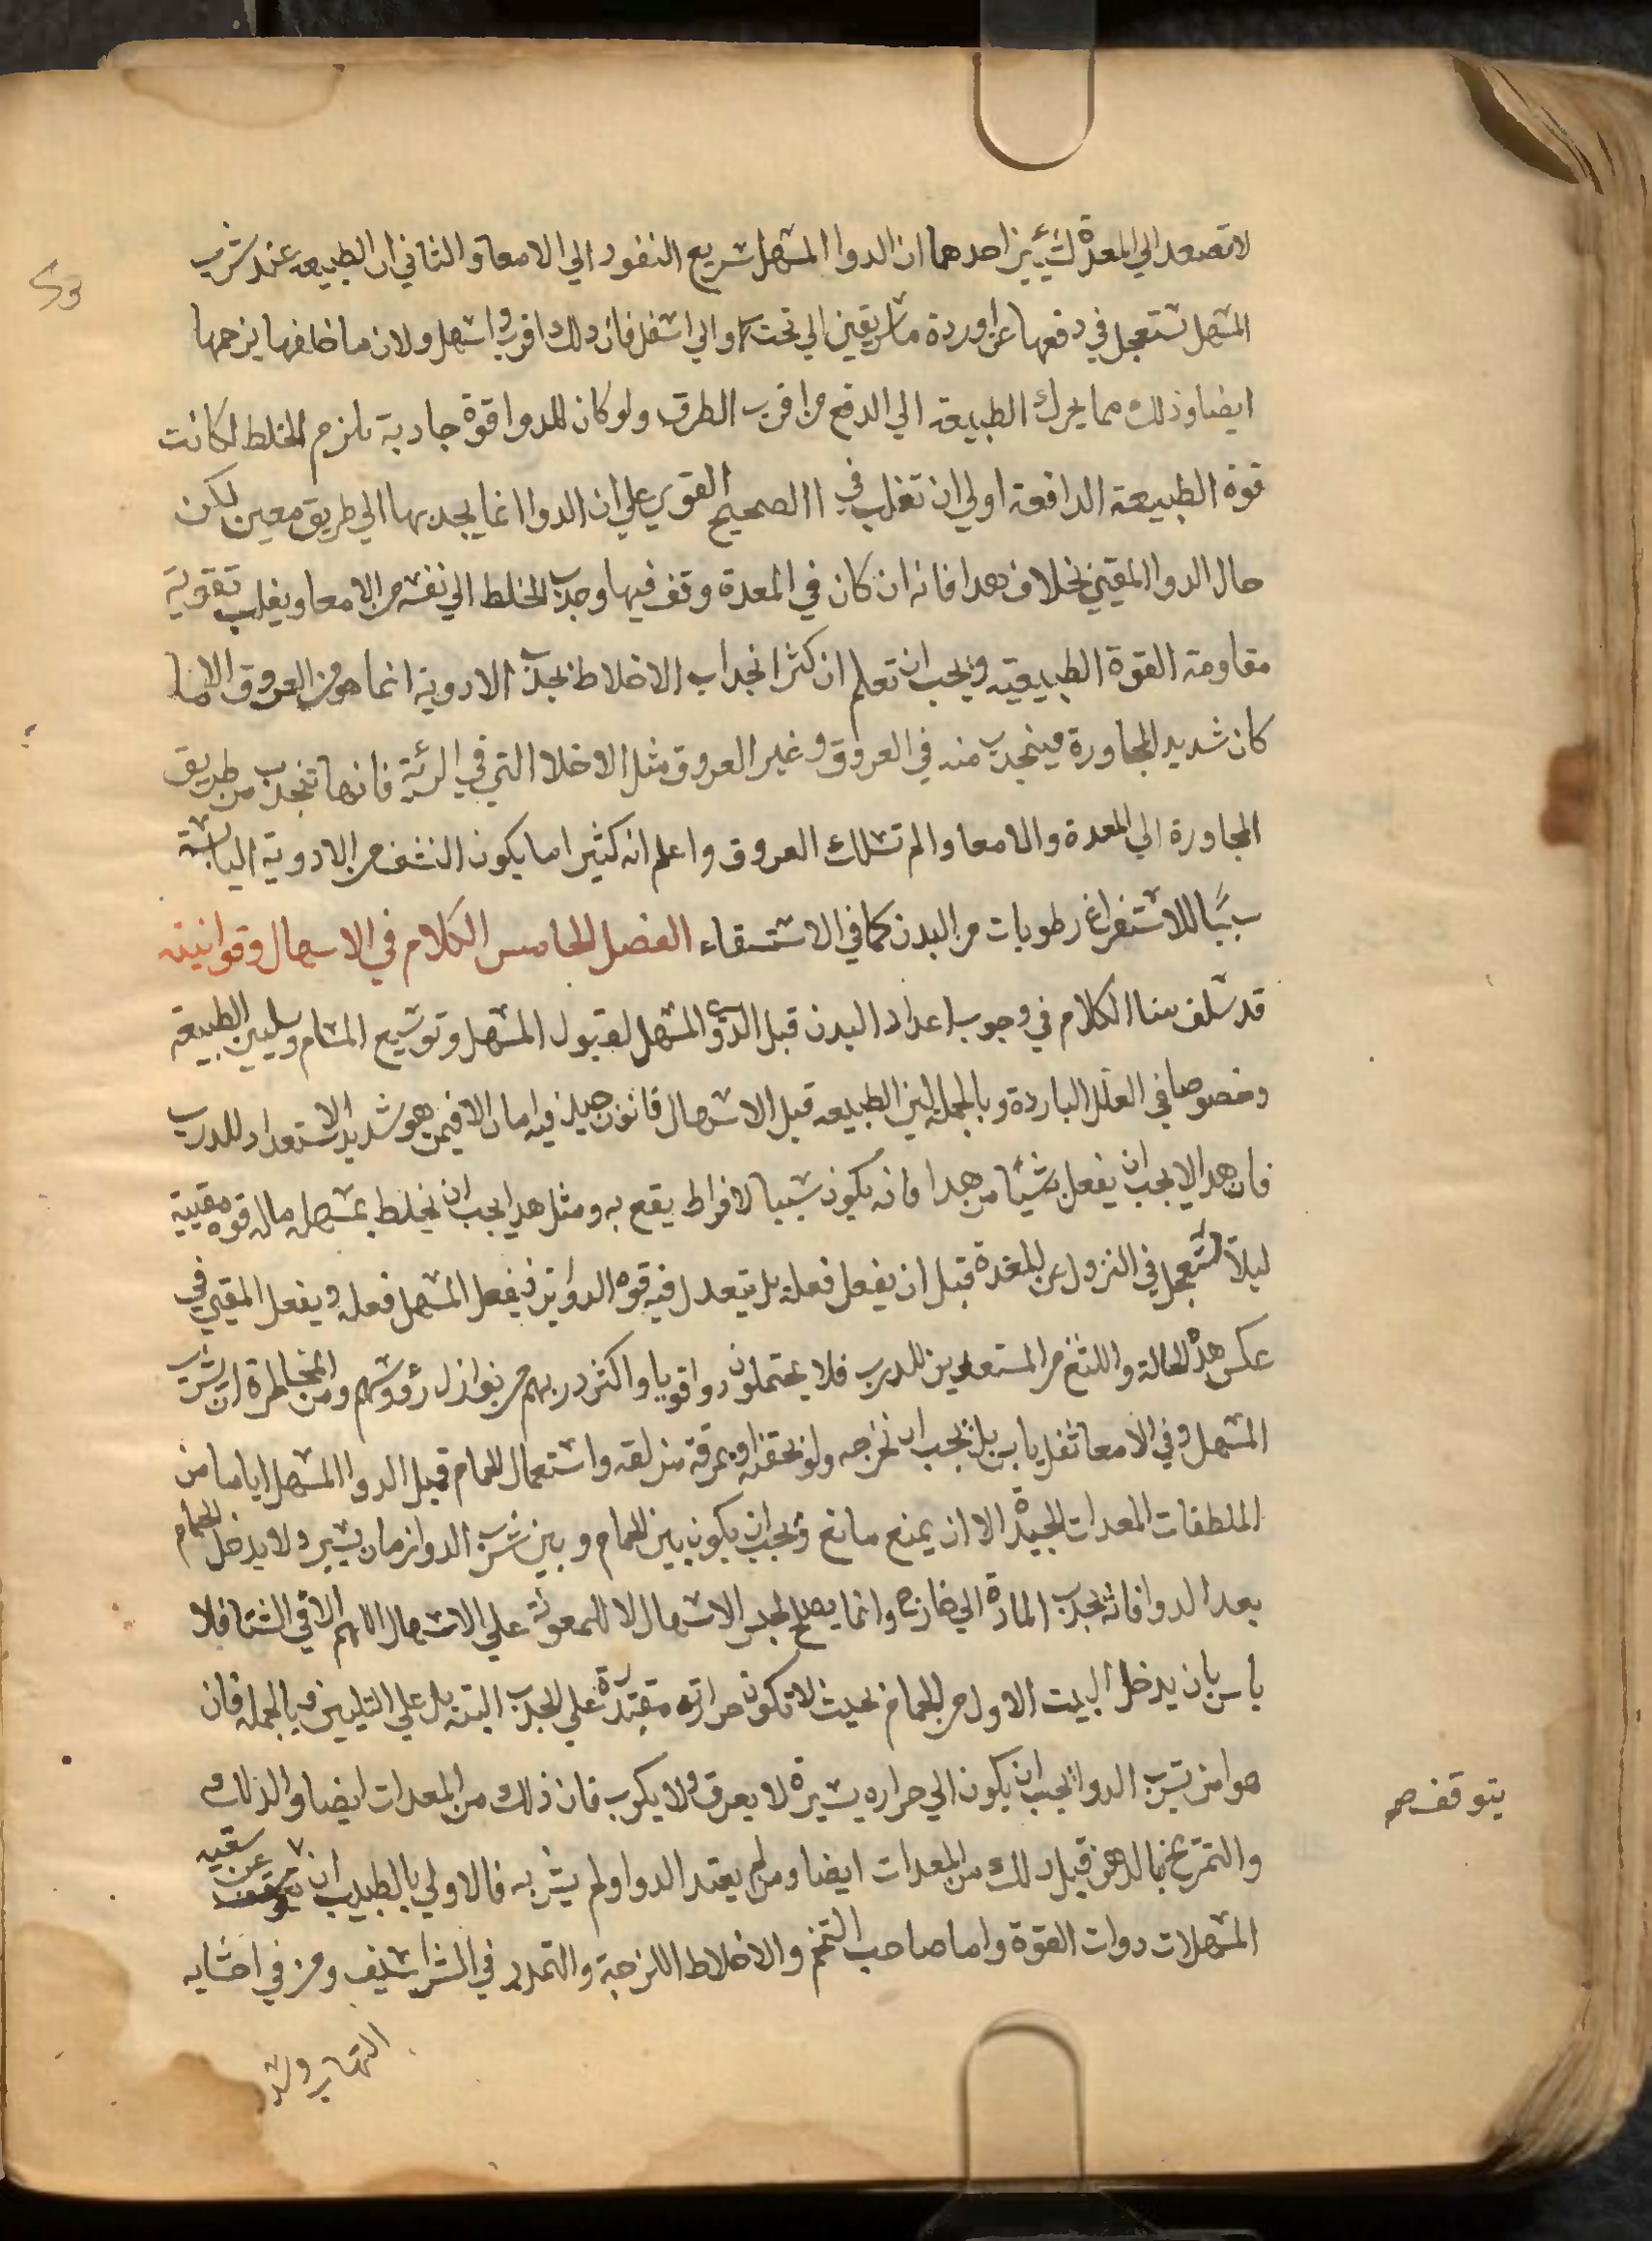 لا تصعد الي المعدة لشيئين احدهما ان الدوا المسهل سريع النفود الي الامعا والثاني ان الطبيعه عند شرب
المسهل تستعجل في دفعها عن اوردة ماساريقين الي تحت والي اسفل فان دلك اقرب واسهل ولان ما خلفها يزحمها
ايضا وذلك مما يحرك الطبيعة الي الدفع من اقرب الطرق ولو كان للدوا قوة جادبة تلزم الخلط لكانت
قوة الطبيعة الدافعة اولي ان تغلب في الصحيح القوي علي ان الدوا انما يجدبها الي طريق معين لكن
حال الدوا المقيئ بخلاف هدا فانه ان كان في المعدة وقف فيها وجدب الخلط الي نفسه من الامعا ويغلب بقوته
مقاومة القوة الطبيعية ويجب ان تعلم ان كثر انجداب الاخلاط بجدب الادوية انما هو من العروق الا ما
كان شديد المجاورة فينجدب منه في العروق وغير العروق مثل الاخلا التي في الرئة فانها تنجدب من طريق
المجاورة الي المعدة والامعا والم تسلك العروق واعلم انه كثيرا ما يكون النشف من الادوية اليابسة
سببا للاستفراغ رطوبات من البدن كما في الاستسقاء الفصل الخامس الكلام في الاسهال وقوانينه
قد سلف منا الكلام في وجوب اعداد البدن قبل الدوا المسهل لقبول المسهل وتوسيع المسام وتليين الطبيعة
وخصوصا في العلل الباردة وبالجملة لين الطبيعه قبل الاسهال قانون جيد فيه امان الا فيمن هو شديد الاستعداد للدرب
فان هدا لا يجب ان يفعل شيئا من هدا فانه يكون سببا لافراط يقع به ومثل هدا يجب ان يخلط بمسهله ماله قوه مقيية
ليلا تستعجل في النزول عن المعدة قبل ان يفعل فعله بل يتعدل فيه قوه الدوائين فيفعل المسهل فعله ويفعل المقيئ في
عكس هذه الحالة واللثغ من المستعدين للدرب فلا يحتملون دوا قويا واكثر دربهم من نوازل رؤوسهم ومن المخاطرة ان يشرب
المسهل وفي الامعا ثفل يابس بل يجب ان تخرجه ولو بحقنة او بمرقة مزلقه واستعمال الحمام قبل الدوا المسهل اياما من
الملطفات المعدات الجيدة الا ان يمنع مانع ويجب ان يكون بين الحمام وبين شرب الدوا زمان يسير ولا يدخل الحمام
بعد الدوا فانه يجدب المادة الي خارج وانما يصلح لحبس الاسهال لا للمعونة علي الاسهال اللهم الا في الشتا فلا
باس بان يدخل البيت الاول من الحمام بحيث لا تكون حرارته مقتدرة علي الجدب البتة بل علي التليين وبالجملة فان
هوا من يشرب الدوا يجب ان يكون الي حراره يسيرة لا يعرق ولا يكرب فان ذلك من المعدات ايضا والدلك
والتمريخ بالدهن قبل دلك من المعدات ايضا ومن لم يعتد الدوا ولم يشربه فالاولي بالطبيب ان عن سقيه
يتوقف صح
المسهلات دوات القوة واما صاحب التخم والاخلاط اللزجة والتمدد في الشراسيف ومن في احشايه
التهاب